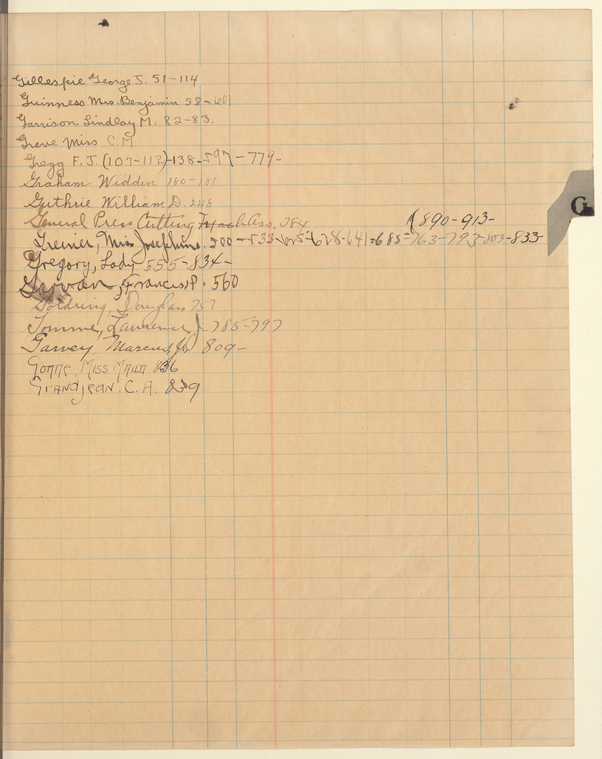 Gillespie George J. 51-114
Guinness Mrs. Benjamin 58-601
Garrison Lindley M. 82-83.
Greve Miss C.M
Gregg F.J (107-113)-138-597-779-
Graham Widden 180-181
Guthrie William D. 248
General Press Cutting Ass. 384
(890-913-
Greiner, Miss Josephine. 500-533-605-628-641-685-763-793-803-833-
Gregory, Lady 555-834-
Francis P. 560
Goldring, Douglass 757
Lawrence J. 785-797
Garvey, Marcus, Jr. 809-
Gonne, Miss Maud 836
Grandjean. C. A. 839
G